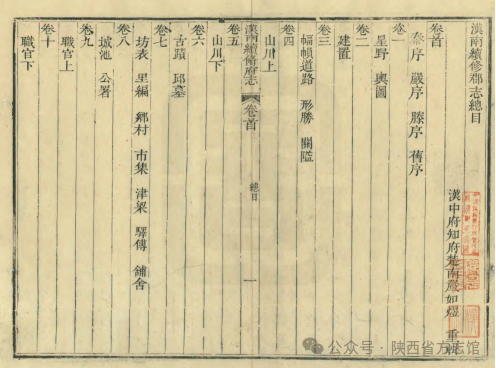 漢南續修郡志總目
漢中府知府楚南嚴如熤 重輯
卷首
序 嚴序 滕序 舊序
卷一
星野 輿圖
卷二
建置
卷三
幅幀道路 形勝 關隘
卷四
山川上
漢南續脩府志 卷首 總目 一
卷五
山川下
卷六
古蹟 邱墓
卷七
坊表 里編 鄉村 市集 津梁 驛傳 鋪舍
卷八
城池 公署
卷九
職官上
卷十
職官下
公众号·陕西省方志馆